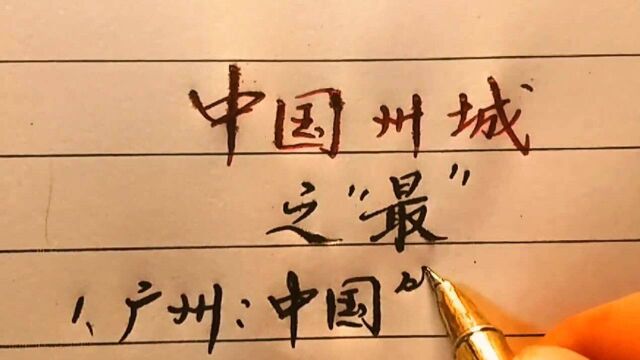 中国州城
之“最”
1、广州：中国“